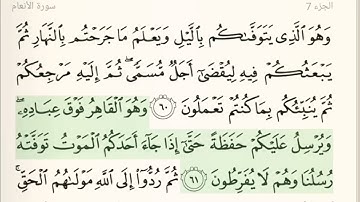 الجزء 7
سورة الأنعام
وَهُوَ ٱلَّذِى يَتَوَفَّىٰكُم بِٱلَّيْلِ وَيَعْلَمُ مَا جَرَحْتُم بِٱلنَّهَارِ ثُمَّ
يَبْعَثُكُمْ فِيهِ لِيُقْضَىٰٓ أَجَلٌ مُّسَمًّى ۖ ثُمَّ إِلَيْهِ مَرْجِعُكُمْ
ثُمَّ يُنَبِّئُكُم بِمَا كُنتُمْ تَعْمَلُونَ ٦٠ وَهُوَ ٱلْقَاهِرُ فَوْقَ عِبَادِهِۦ ۖ
وَيُرْسِلُ عَلَيْكُمْ حَفَظَةً حَتَّىٰٓ إِذَا جَآءَ أَحَدَكُمُ ٱلْمَوْتُ تَوَفَّتْهُ
رُسُلُنَا وَهُمْ لَا يُفَرِّطُونَ ٦١ ثُمَّ رُدُّوٓا۟ إِلَى ٱللَّهِ مَوْلَىٰهُمُ ٱلْحَقِّ ۚ